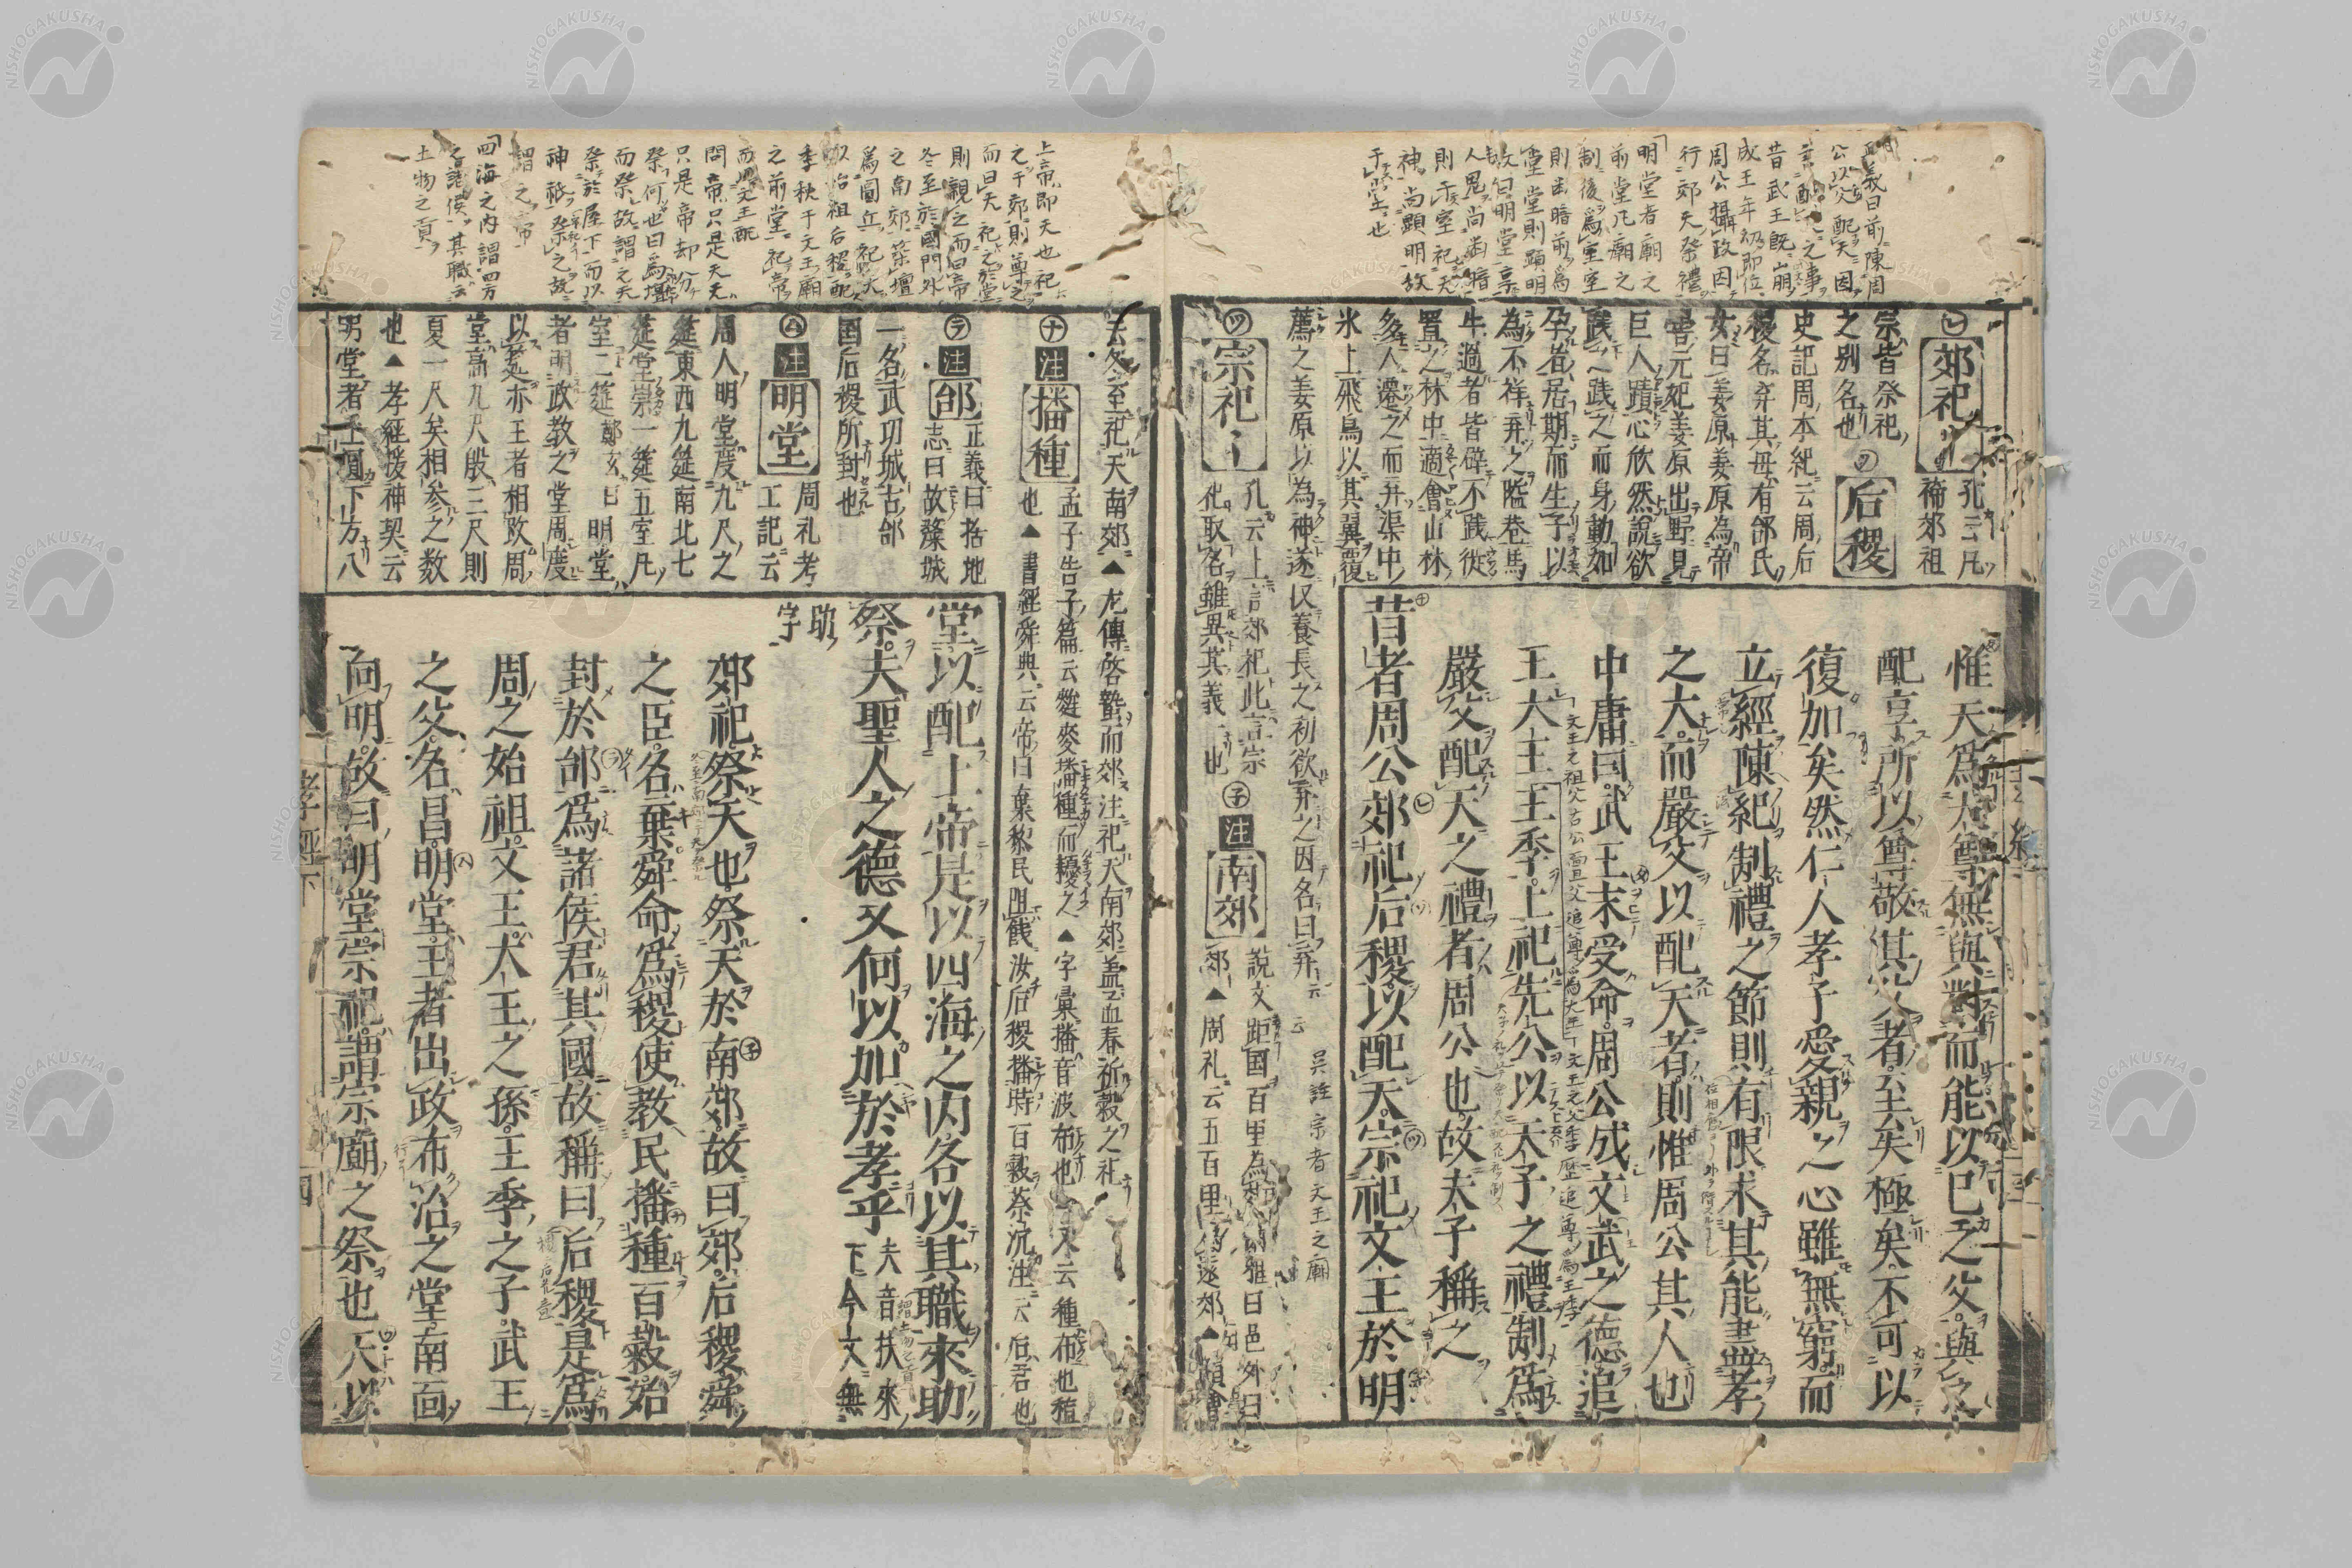 惟天爲大尊無與對而能以己之父與之
配享所以尊敬其父者至矣極矣不可以
復加矣然仁人孝子愛親之心雖無窮而
立經陳紀制禮之節則有限求其能盡孝
之大而嚴父以配天者則惟周公其人也
中庸曰武王末受命周公成文武之德追
王大王王季上祀先公以天子之禮制爲
嚴父配天之禮者周公也故夫子稱之
昔者周公郊祀后稷以配天宗祀文王於明
郊祀
孔云凡
禘郊祖
宗皆祭祀
之别名也
后稷
史記周本紀云周后
稷名弃其母有邰氏
女曰姜原姜原為帝
嚳元妃姜原出野見
巨人蹟心欣然說欲
践之践之而身動如
孕者居期而生子以
為不祥弃之隘巷馬
牛過者皆辟不践徙
置之林中適會山林
多人遷之而弃渠中
氷上飛鳥以其翼覆
薦之姜原以為神遂收養長之初欲弃之因名曰弃
宗祀
孔云上言郊祀此言宗
祀取名雖異其義一也
注
南郊
說文距國百里為郊爾雅曰邑外曰
郊▲周礼云五百里為遂郊▲韻會
吴註宗者文王之廟
正義曰前陳周
公以父配天因
言配天之事
昔武王既崩
成王年幼即位
周公攝政因
行郊天祭禮
明堂者廟之
前堂凡廟之
制後爲室室
則幽暗前爲
堂堂則顯明
故曰明堂享
人鬼尚幽暗
則于室祀天
神尚顯明故
于堂也
云冬至祀天南郊▲左傳啓蟄而郊注祀天南郊蓋孟春祈穀之礼
注
播種
孟子告子篇云麰麥播種而耰之▲字彙播音波布也又云種布也植
也▲書經舜典云帝曰棄黎民阻飢汝后稷播時百穀蔡沉注云后君也
注
邰
正義曰括地
志曰故斄城
一名武功城古邰
国后稷所封也
注
明堂
周礼考
工記云
周人明堂度九尺之
筵東西九筵南北七
筵堂崇一筵五室凡
室二筵鄭玄曰明堂
者明政教之堂周度
以筵亦王者相改周
堂高九尺殷三尺則
夏一尺矣相参之数
也▲孝經援神契云
明堂者上圓下方八
堂以配上帝是以四海之内各以其職來助
祭夫聖人之德又何以加於孝乎
夫音扶來
下今文無
助字
郊祀祭天也祭天於南郊故曰郊后稷舜
之臣名棄舜命爲稷使教民播種百穀始
封於邰爲諸侯君其國故稱曰后稷是爲
周之始祖文王大王之孫王季之子武王
之父名昌明堂王者出政布治之堂南面
向明故曰明堂宗祀謂宗廟之祭也天以
上帝即天也祀
之于郊則尊之
而曰天祀之於堂
則親之而曰帝
冬至於國門外
之南郊築壇
爲圓丘祀天
以始祖后稷配
季秋于文王廟
之前堂祀帝
而以文王配
問帝只是天天
只是帝却分
祭何也曰爲壇
而祭故謂之天
祭於屋下而以
神祇祭之故
謂之帝
四海之内謂四方
之諸侯其職云
土物之貢
孝經下
四